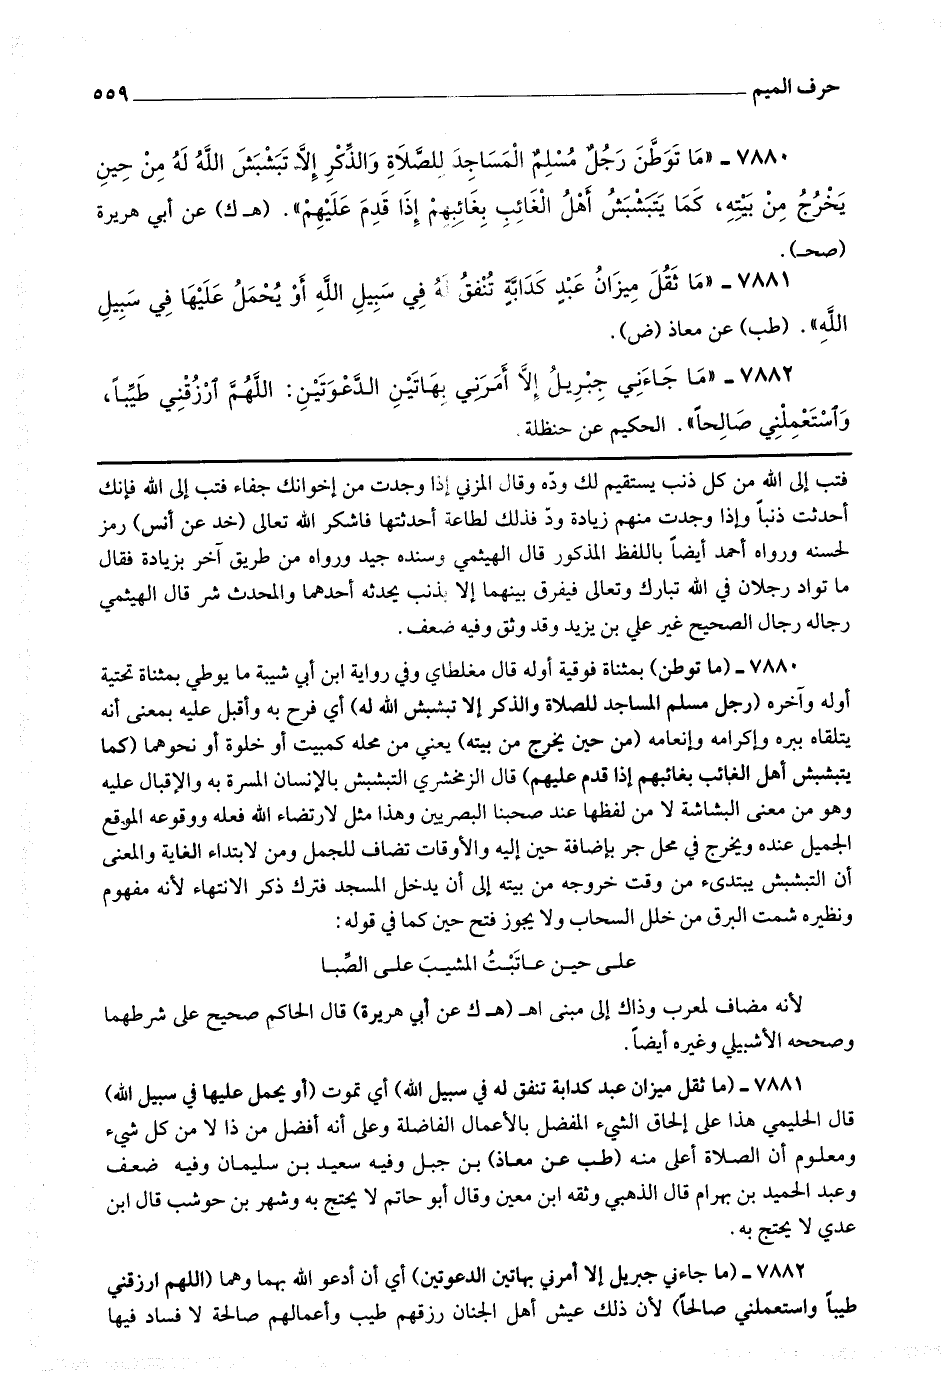 حرف الميم ٥٥٩
٧٨٨٠ ـ «مَا تَوَطَّنَ رَجُلٌ مُسْلِمٌ الْمَسَاجِدَ لِلصَّلَاةِ وَالذِّكْرِ إِلَّا تَبَشْبَشَ اللَّهُ لَهُ مِنْ حِينِ
يَخْرُجُ مِنْ بَيْتِهِ، كَمَا يَتَبَشْبَشُ أَهْلُ الْغَائِبِ بِغَائِبِهِمْ إِذَا قَدِمَ عَلَيْهِمْ». (هـ ك) عن أبي هريرة
(صحـ).
٧٨٨١ ـ «مَا ثَقُلَ مِيزَانُ عَبْدٍ كَدَابَّةٍ تُنْفَقُ لَهُ فِي سَبِيلِ اللَّهِ أَوْ يُحْمَلُ عَلَيْهَا فِي سَبِيلِ
اللَّهِ». (طب) عن معاذ (ض).
٧٨٨٢ ـ «مَا جَاءَنِي جِبْرِيلُ إِلَّا أَمَرَنِي بِهَاتَيْنِ الدَّعْوَتَيْنِ: اللَّهُمَّ ٱرْزُقْنِي طَيِّباً،
وَٱسْتَعْمِلْنِي صَالِحاً». الحكيم عن حنظلة.
فتب إلى الله من كل ذنب يستقيم لك ودّه وقال المزني إذا وجدت من إخوانك جفاء فتب إلى الله فإنك
أحدثت ذنباً وإذا وجدت منهم زيادة ودّ فذلك لطاعة أحدثتها فاشكر الله تعالى (خد عن أنس) رمز
لحسنه ورواه أحمد أيضاً باللفظ المذكور قال الهيثمي وسنده جيد ورواه من طريق آخر بزيادة فقال
ما تواد رجلان في الله تبارك وتعالى فيفرق بينهما إلا بذنب يحدثه أحدهما والمحدث شر قال الهيثمي
رجاله رجال الصحيح غير علي بن يزيد وقد وثق وفيه ضعف.
٧٨٨٠ ـ (ما توطن) بمثناة فوقية أوله قال مغلطاي وفي رواية ابن أبي شيبة ما يوطي بمثناة تحتية
أوله وآخره (رجل مسلم المساجد للصلاة والذكر إلا تبشبش الله له) أي فرح به وأقبل عليه بمعنى أنه
يتلقاه ببره وإكرامه وإنعامه (من حين يخرج من بيته) يعني من محله كمبيت أو خلوة أو نحوهما (كما
يتبشبش أهل الغائب بغائبهم إذا قدم عليهم) قال الزمخشري التبشبش بالإنسان المسرة به والإقبال عليه
وهو من معنى البشاشة لا من لفظها عند صحبنا البصريين وهذا مثل لارتضاء الله فعله ووقوعه الموقع
الجميل عنده ويخرج في محل جر بإضافة حين إليه والأوقات تضاف للجمل ومن لابتداء الغاية والمعنى
أن التبشبش يبتدىء من وقت خروجه من بيته إلى أن يدخل المسجد فترك ذكر الانتهاء لأنه مفهوم
ونظيره شمت البرق من خلل السحاب ولا يجوز فتح حين كما في قوله:
على حين عاتَبْتُ المشيبَ على الصِّبا
لأنه مضاف لمعرب وذاك إلى مبنى اهـ (هـ ك عن أبي هريرة) قال الحاكم صحيح على شرطهما
وصححه الأشبيلي وغيره أيضاً.
٧٨٨١ ـ (ما ثقل ميزان عبد كدابة تنفق له في سبيل الله) أي تموت (أو يحمل عليها في سبيل الله)
قال الحليمي هذا على إلحاق الشيء المفضل بالأعمال الفاضلة وعلى أنه أفضل من ذا لا من كل شيء
ومعلوم أن الصلاة أعلى منه (طب عن معاذ) بن جبل وفيه سعيد بن سليمان وفيه ضعف
وعبد الحميد بن بهرام قال الذهبي وثقه ابن معين وقال أبو حاتم لا يحتج به وشهر بن حوشب قال ابن
عدي لا يحتج به.
٧٨٨٢ ـ (ما جاءني جبريل إلا أمرني بهاتين الدعوتين) أي أن أدعو الله بهما وهما (اللهم ارزقني
طيباً واستعملني صالحاً) لأن ذلك عيش أهل الجنان رزقهم طيب وأعمالهم صالحة لا فساد فيها